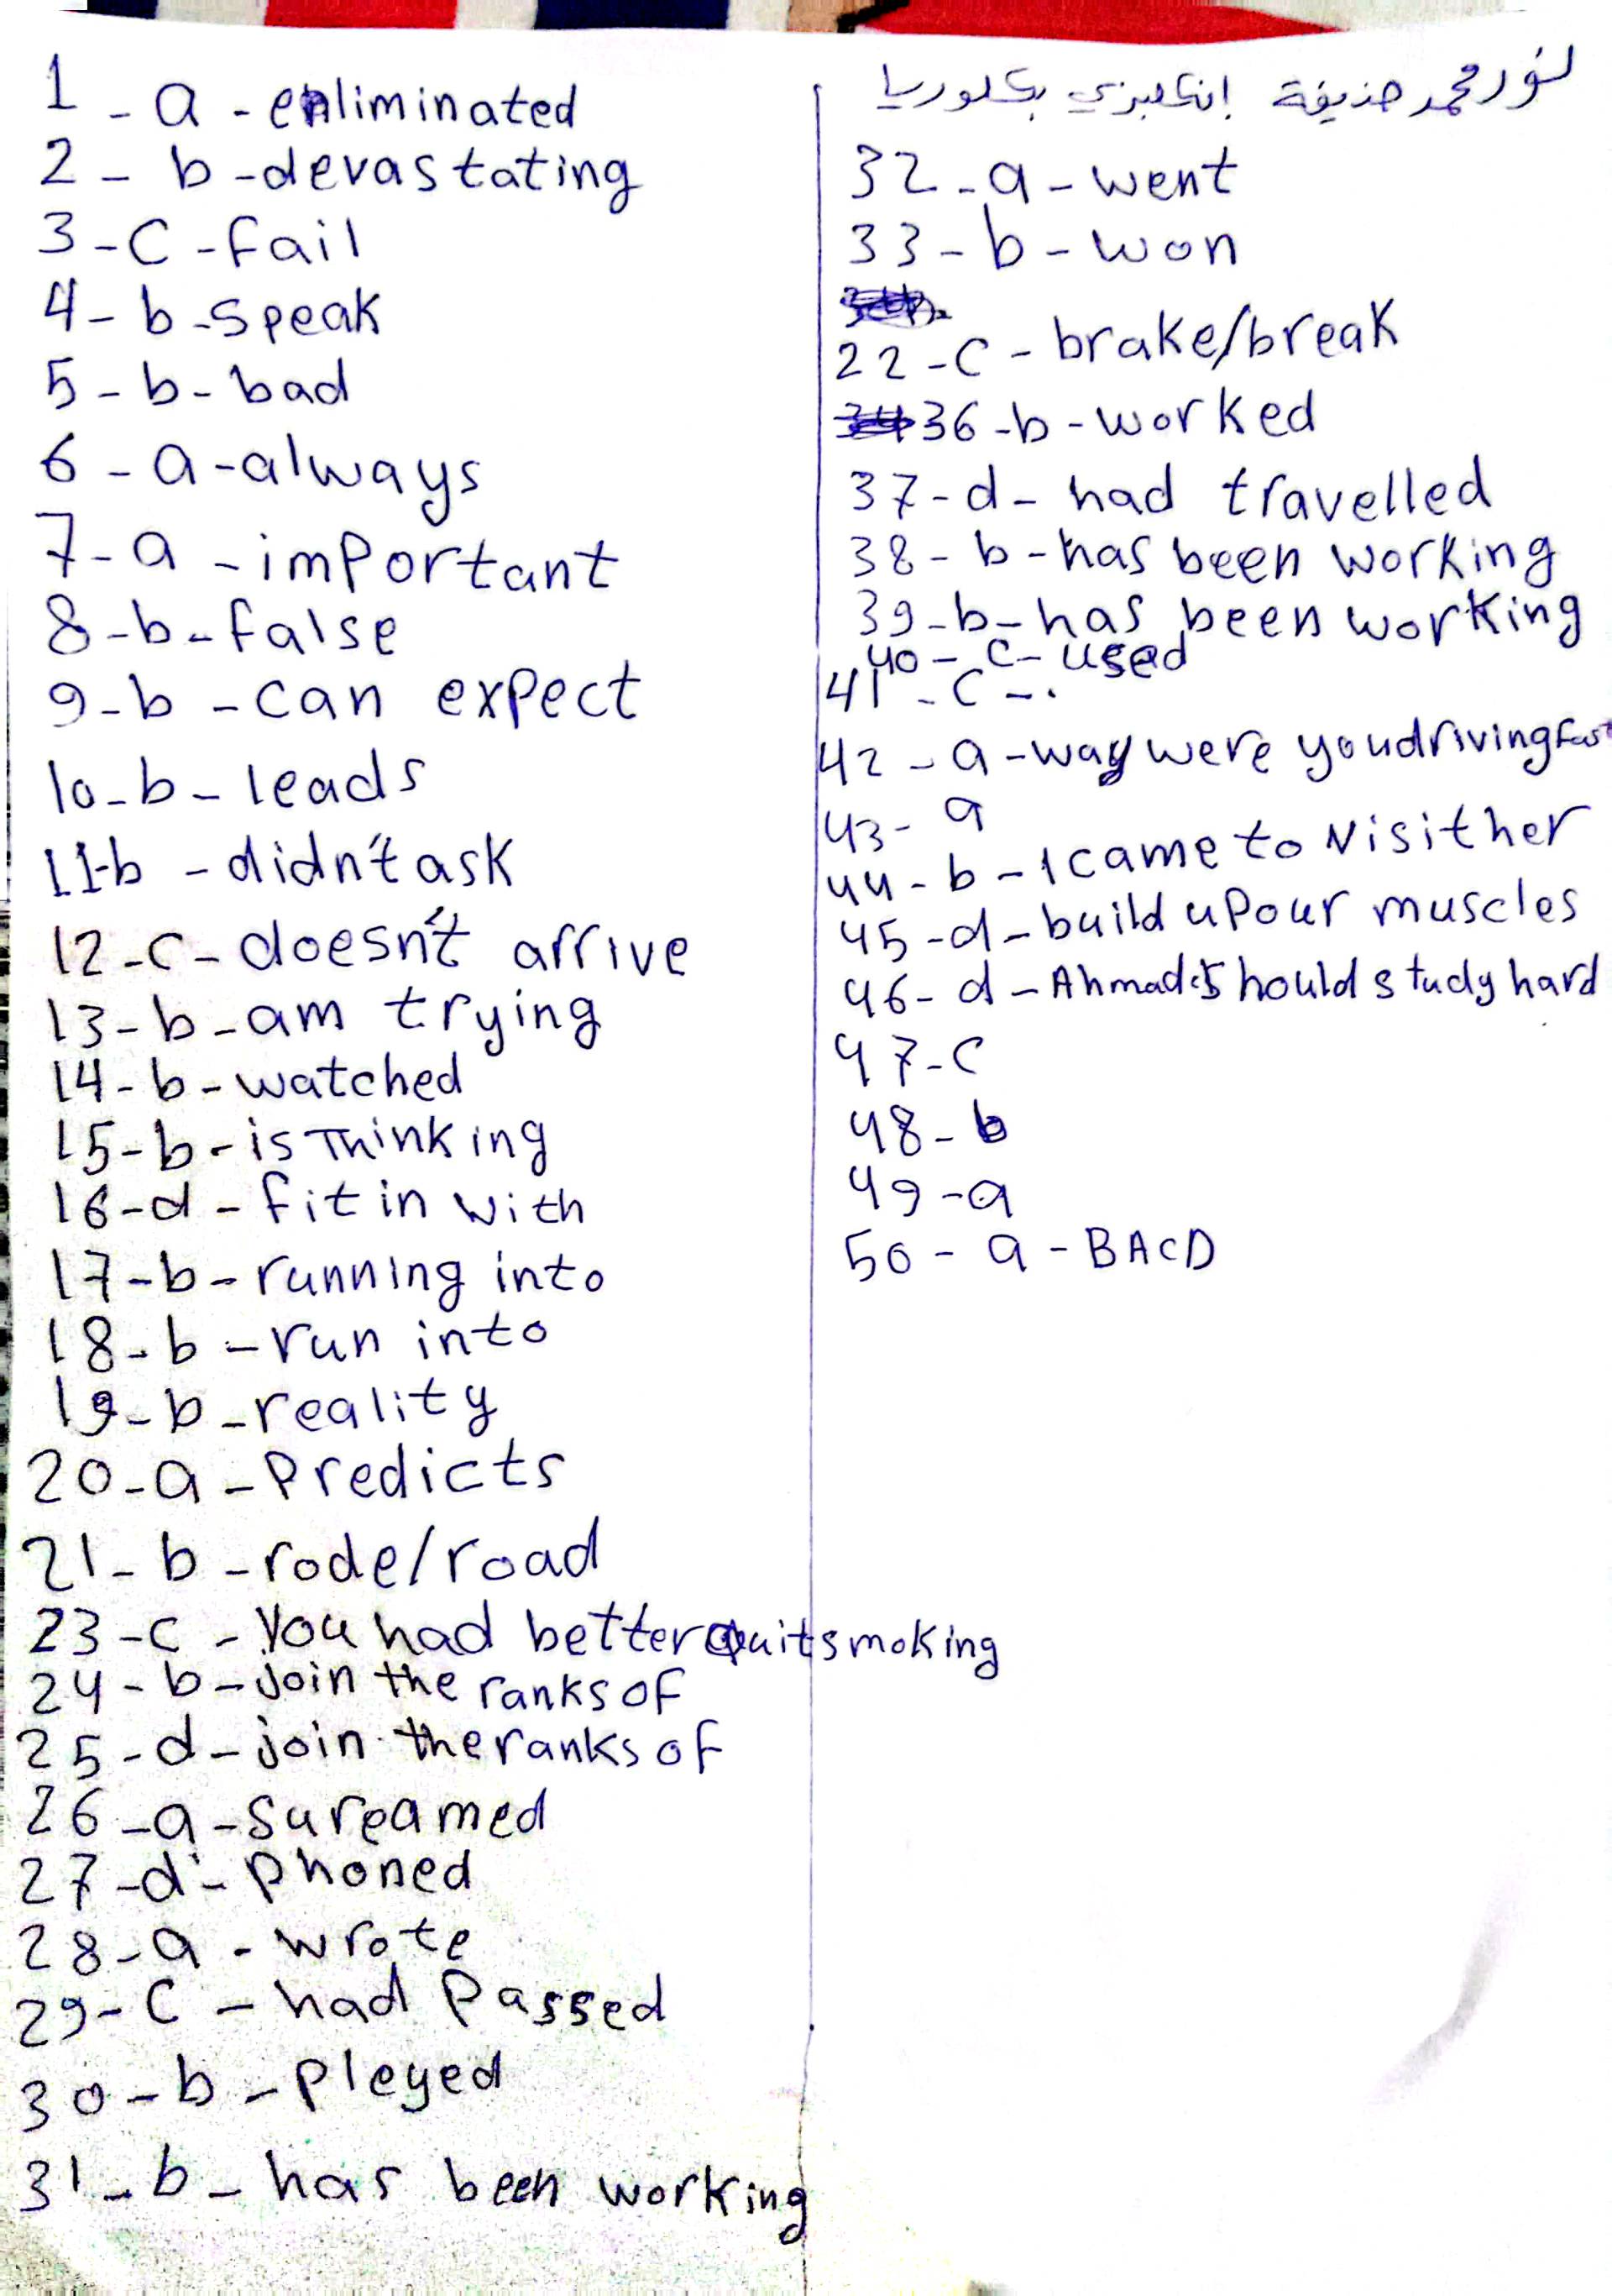 1 - a - enliminated
2 - b - devastating
3 - C - fail
4 - b - speak
5 - b - bad
6 - a - always
7 - a - important
8 - b - false
9 - b - can expect
10 - b - leads
11 - b - didn't ask
12 - c - doesn't arrive
13 - b - am trying
14 - b - watched
15 - b - is Thinking
16 - d - fit in with
17 - b - running into
18 - b - run into
19 - b - reality
20 - a - Predicts
21 - b - rode/road
23 - c - You had better quit smoking
24 - b - join the ranks of
25 - d - join the ranks of
26 - a - sureamed
27 - d - phoned
28 - a - wrote
29 - C - had Passed
30 - b - Pleyed
31 - b - has been working
نور محمد حذيفة إنكليزي بكلوريا
32 - a - went
33 - b - won
22 - C - brake/break
36 - b - worked
37 - d - had travelled
38 - b - has been working
39 - b - has been working
40 - C - used
41 - C - .
42 - a - way were you driving fast
43 - a
44 - b - I came to visit her
45 - d - build up our muscles
46 - d - Ahmad should study hard
47 - C
48 - b
49 - a
50 - a - BACD